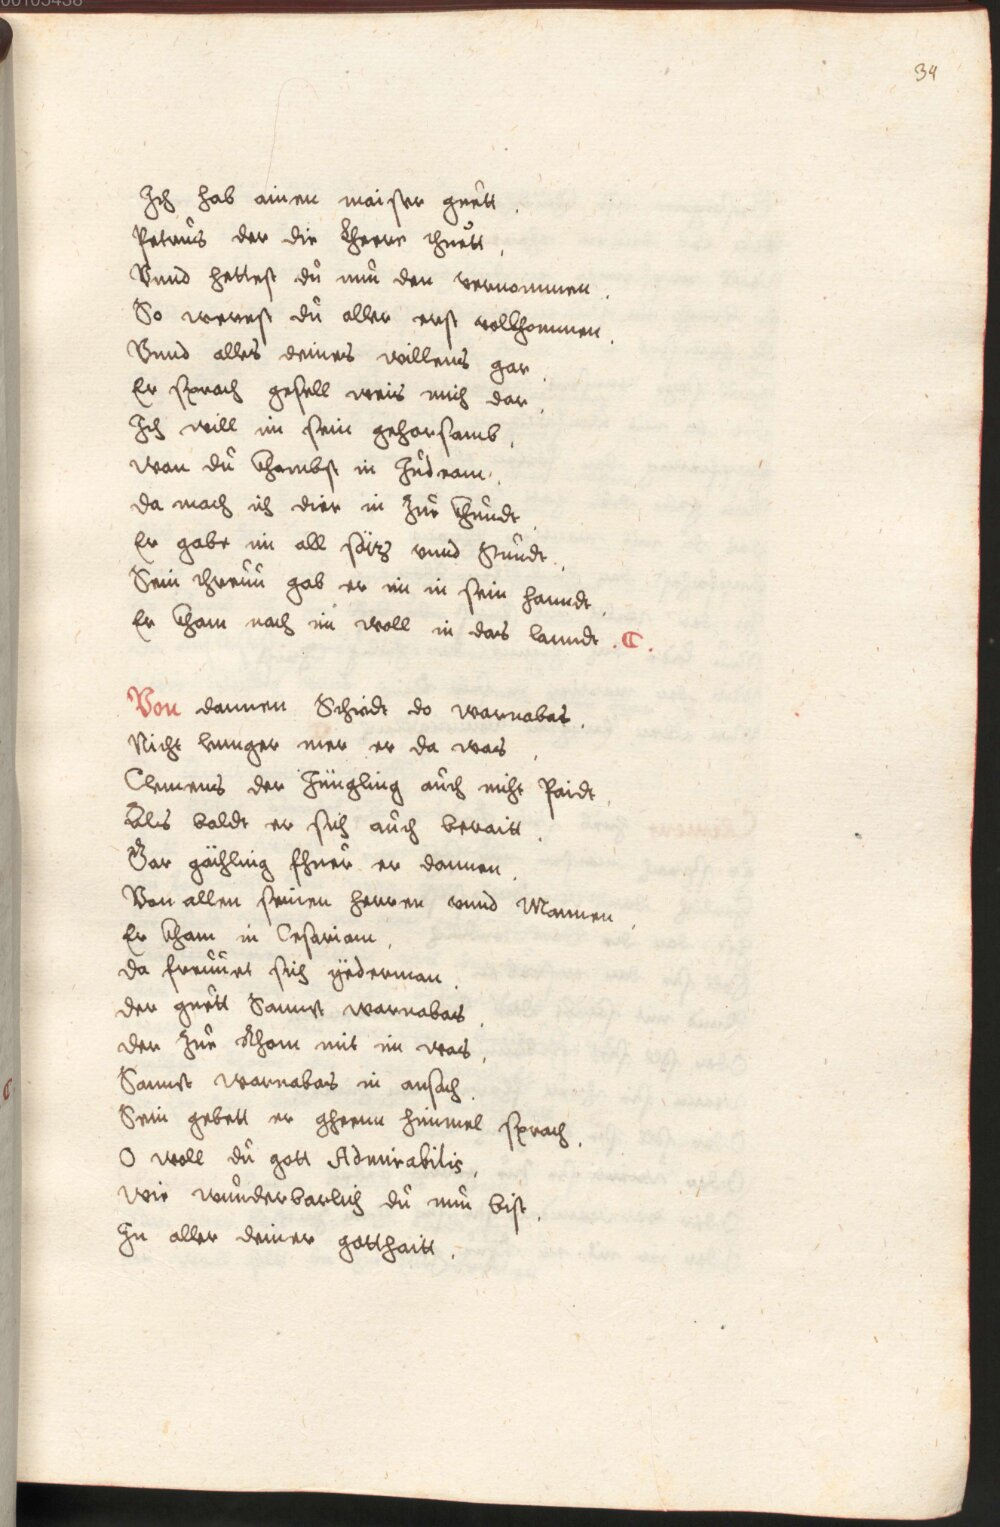 00103438
34
Ich hab ainen maister guett.
Petrus der die kherr thuett,
Vnnd hettest du nun den vernommen.
So werest du aller erst vollkhommen.
Vnnd alles deines willens gar.
Er sprach gesell weis mich dar,
Ich will im sein gehorsamb,
wan du khombst in Judeam.
da mach ich dier in zue khundt.
Er gabe im all sätz vnnd Stundt.
Sein threuu gab er im in sein hanndt.
Er kham nach im woll in das lanndt. C.
Von dannen Schiedt do warnabas.
Nicht lennger mer er da was,
Clemens der Jüngling auch nicht Paidt,
Als baldt er sich auch beraitt.
Gar gächling fhuer er dannen,
Von allen seinen herren vnnd Mannen,
Er kham in Cesariam,
da freuuet sich yederman.
der guett Sannct warnabas,
der zue kham mit im was,
Sannct warnabas in ansach.
Sein gebett er gheenn himmel sprach.
O woll du gott Admirabilis,
wie wunderbarlich du nun bist.
In aller deiner gotthaitt.